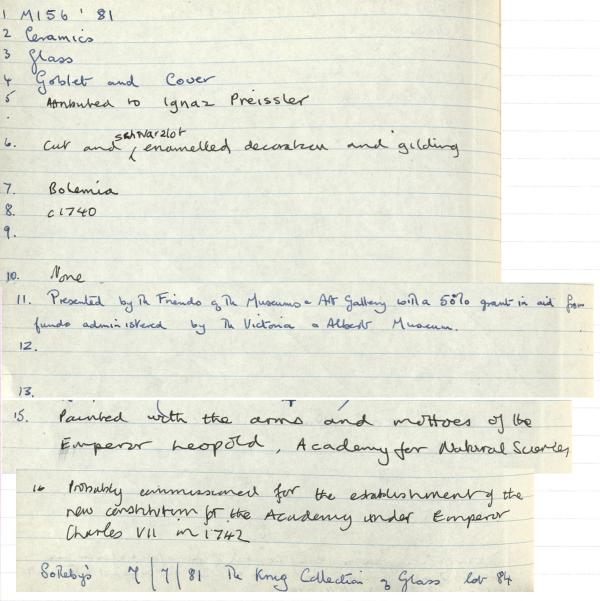 1 M156 '81
2 Ceramics
3 Glass
4 Goblet and Cover
5 Attributed to Ignaz Preissler
schwarzlot
6. Cut and enamelled decoration and gilding
7. Bohemia
8. c1740
9.
10. None
11. Presented by Th Friends of Th Museums & Art Gallery with a 50% grant in aid from
funds administered by Th Victoria & Albert Museum.
12.
13.
15. Painted with the arms and mottoes of the
Emperor Leopold, Academy for Natural Sciences
16 Probably commissioned for the establishment of the
new constitution for the Academy under Emperor
Charles VII in 1742
Sotheby's 7/7/81 Th Krug Collection of Glass lot 84